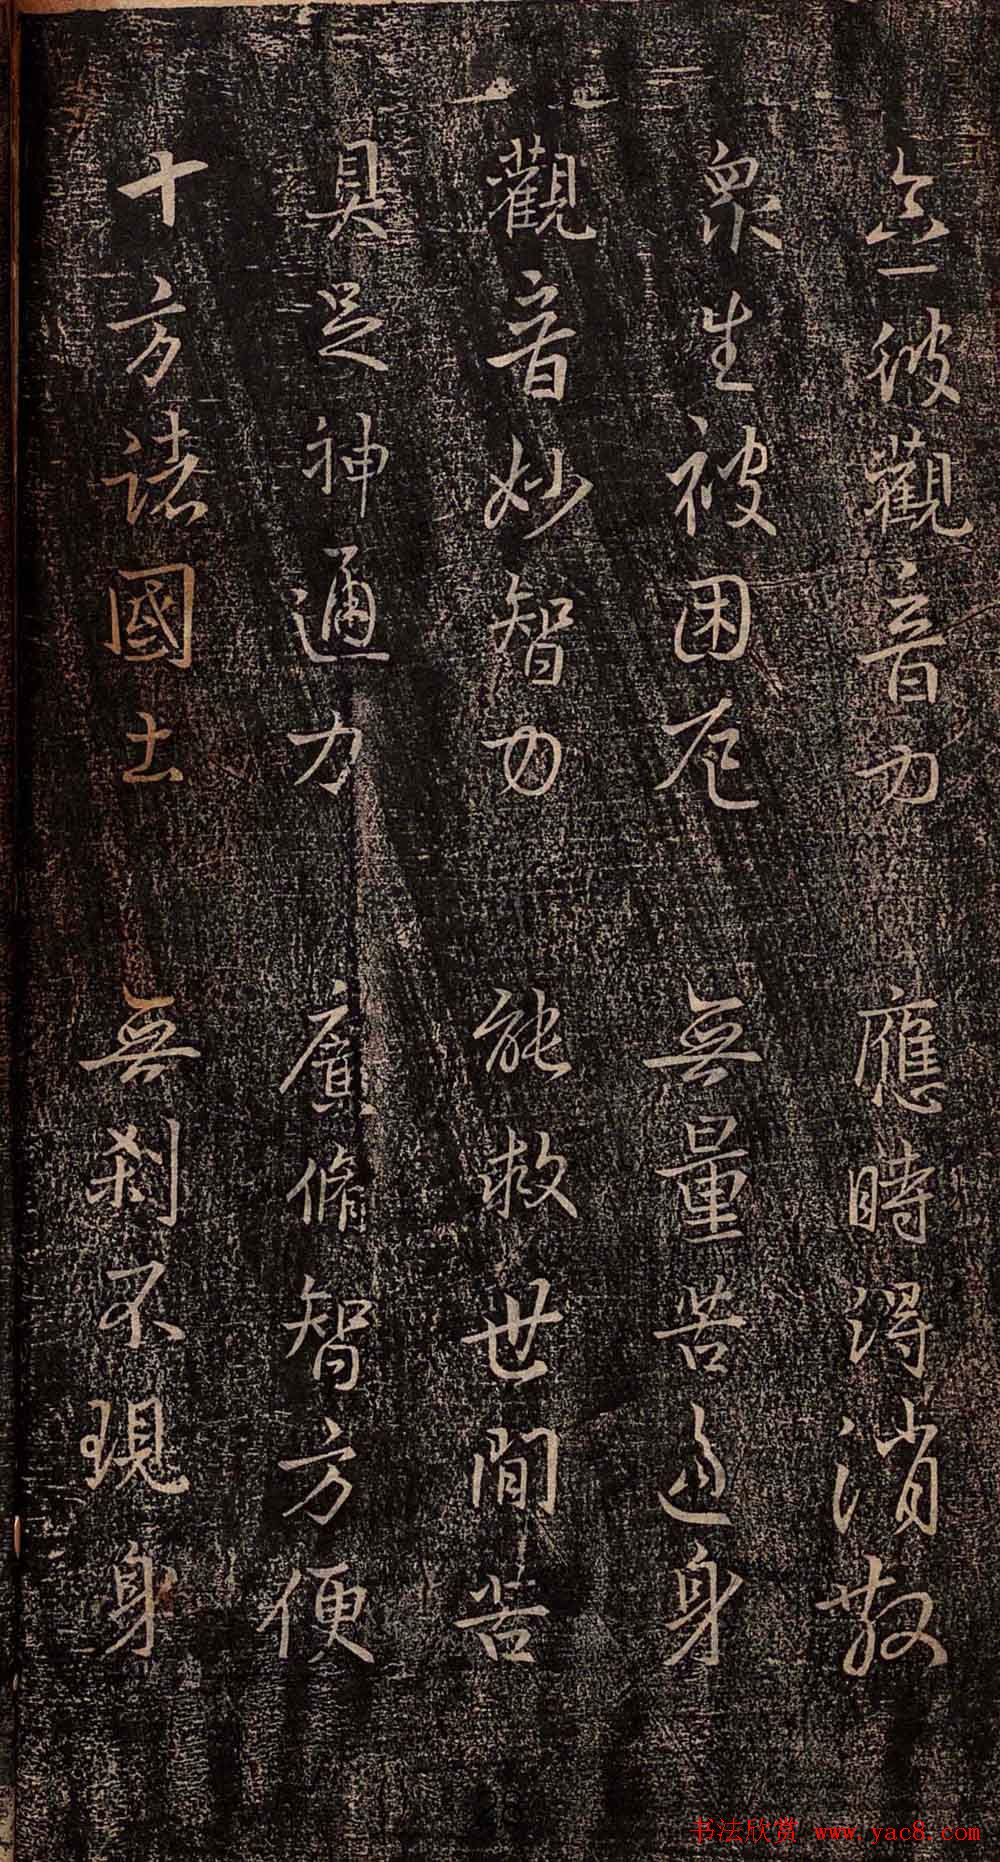 念彼觀音力 應時得消散
衆生被困厄 無量苦逼身
觀音妙智力 能救世間苦
具足神通力 廣脩智方便
十方諸國土 無刹不現身
书法欣赏 www.yac8.com